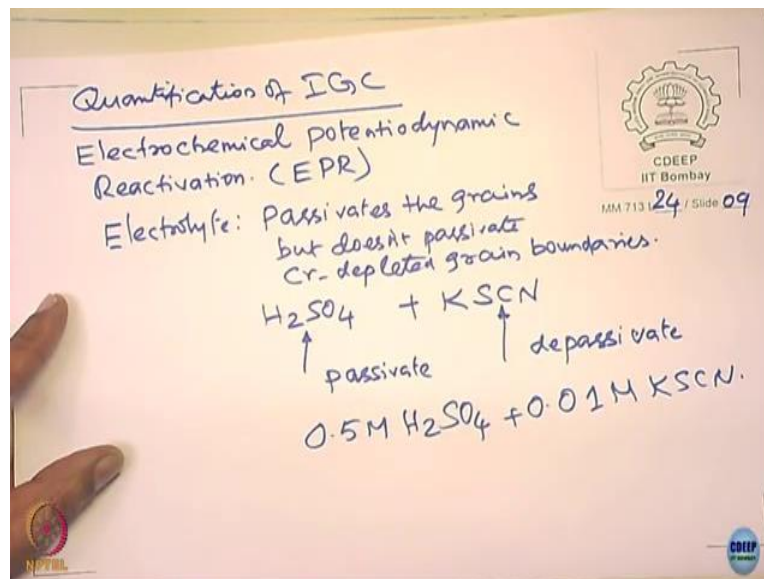 Quantification of IGC
Electrochemical potentiodynamic
Reactivation. (EPR)
Electrolyte: Passivates the grains
but doesn't passivate
Cr-depleted grain boundaries.
H₂SO₄ + KSCN
passivate
depassivate
0.5M H₂SO₄ + 0.01M KSCN.
CDEEP
IIT Bombay
MM 713 L 24 / Slide 09
NPTEL
CDEEP
IIT BOMBAY